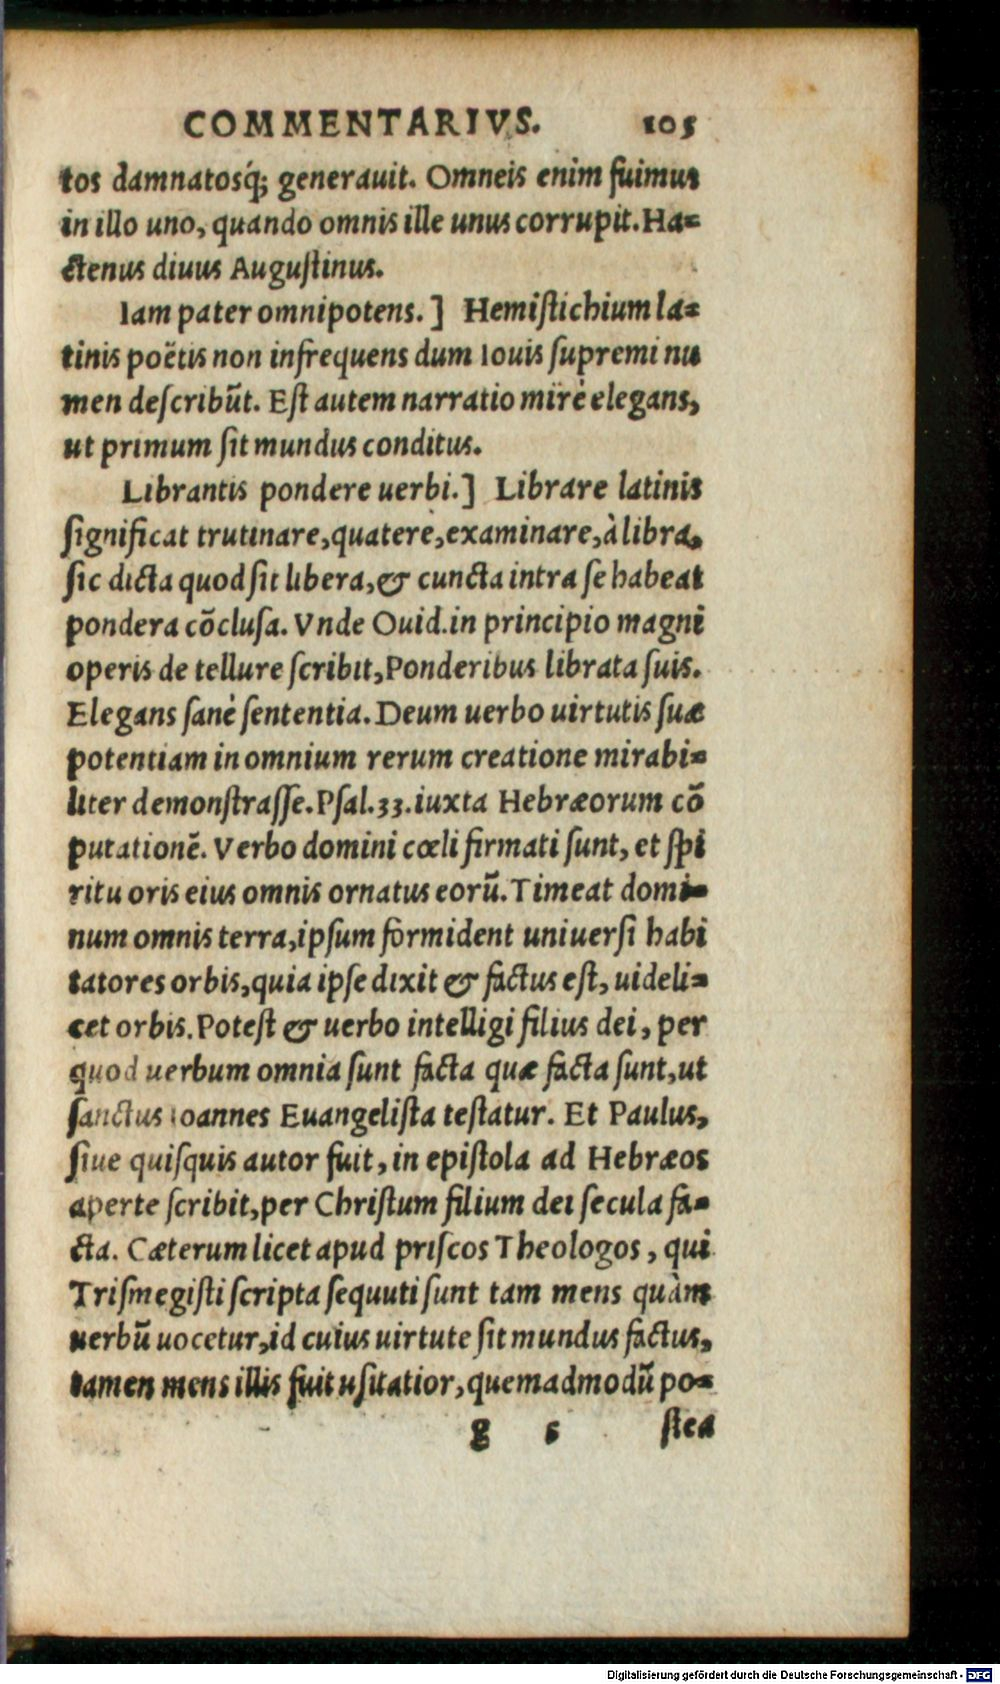 COMMENTARIVS. 105
tos damnatosq́; generauit. Omneis enim fuimus
in illo uno, quando omnis ille unus corrupit. Ha-
ctenus diuus Auguſtinus.
Iam pater omnipotens. ] Hemiſtichium la-
tinis poëtis non infrequens dum Iouis ſupremi nu
men deſcribũt. Eſt autem narratio mirè elegans,
ut primum ſit mundus conditus.
Librantis pondere uerbi. ] Librare latinis
ſignificat trutinare, quatere, examinare, à libra,
ſic dicta quod ſit libera, & cuncta intra ſe habeat
pondera cõcluſa. Vnde Ouid. in principio magni
operis de tellure ſcribit, Ponderibus librata ſuis.
Elegans ſanè ſententia. Deum uerbo uirtutis ſuæ
potentiam in omnium rerum creatione mirabi-
liter demonſtraſſe. Pſal. 33. iuxta Hebræorum cõ
putationẽ. Verbo domini cœli firmati ſunt, et ſpi
ritu oris eius omnis ornatus eorũ. Timeat domi-
num omnis terra, ipſum formident uniuerſi habi
tatores orbis, quia ipſe dixit & factus eſt, uideli-
cet orbis. Poteſt & uerbo intelligi filius dei, per
quod uerbum omnia ſunt facta quæ facta ſunt, ut
ſanctus Ioannes Euangeliſta teſtatur. Et Paulus,
ſiue quiſquis autor fuit, in epiſtola ad Hebræos
aperte ſcribit, per Chriſtum filium dei ſecula fa-
cta. Cæterum licet apud priſcos Theologos, qui
Triſmegiſti ſcripta ſequuti ſunt tam mens quàm
uerbũ uocetur, id cuius uirtute ſit mundus factus,
tamen mens illis fuit uſitatior, quemadmodũ po-
g 5 ſtea
Digitalisierung gefördert durch die Deutsche Forschungsgemeinschaft - DFG